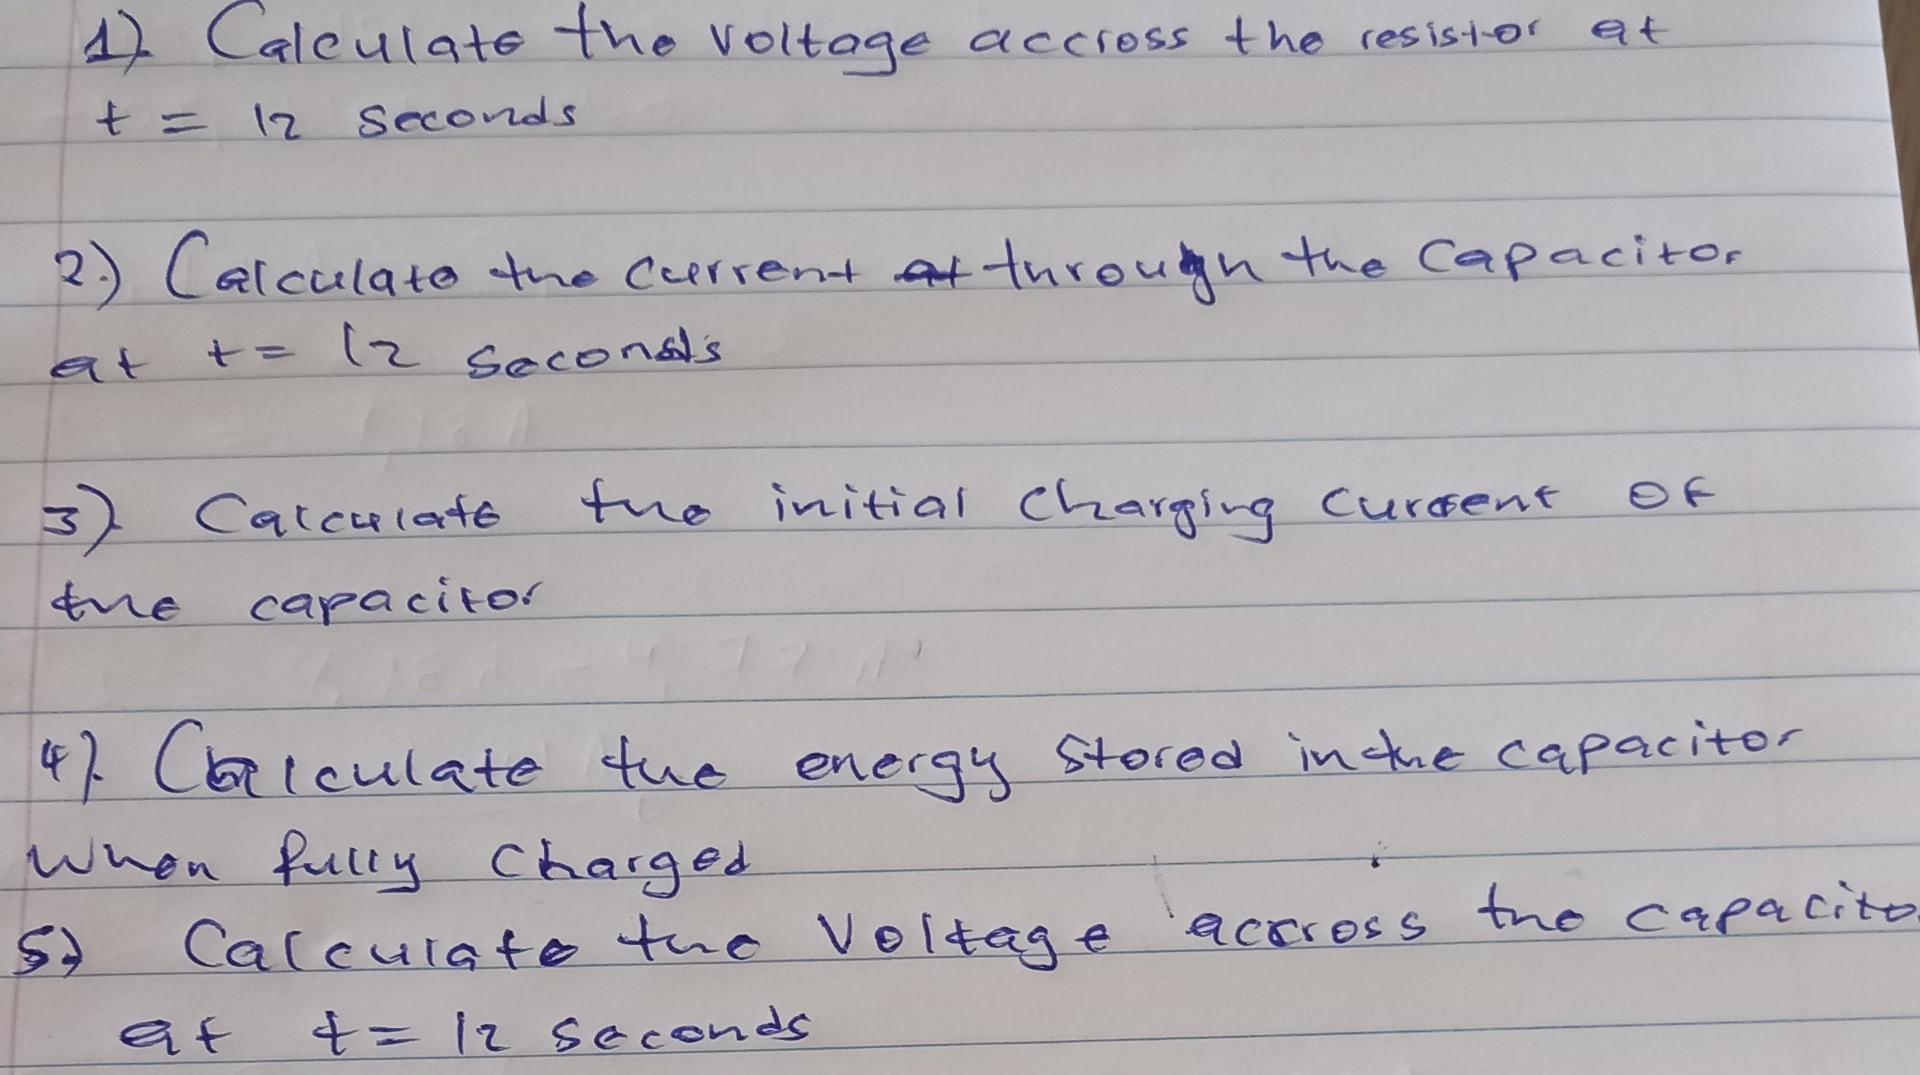 1) Calculate the voltage accross the resistor at
t = 12 seconds
2.) Calculate the current at through the capacitor
at t = 12 seconds
3) Calculate the initial charging current of
the capacitor
4). Calculate the energy stored in the capacitor
when fully charged
5) Calculate the Voltage accross the capacito
at t = 12 seconds